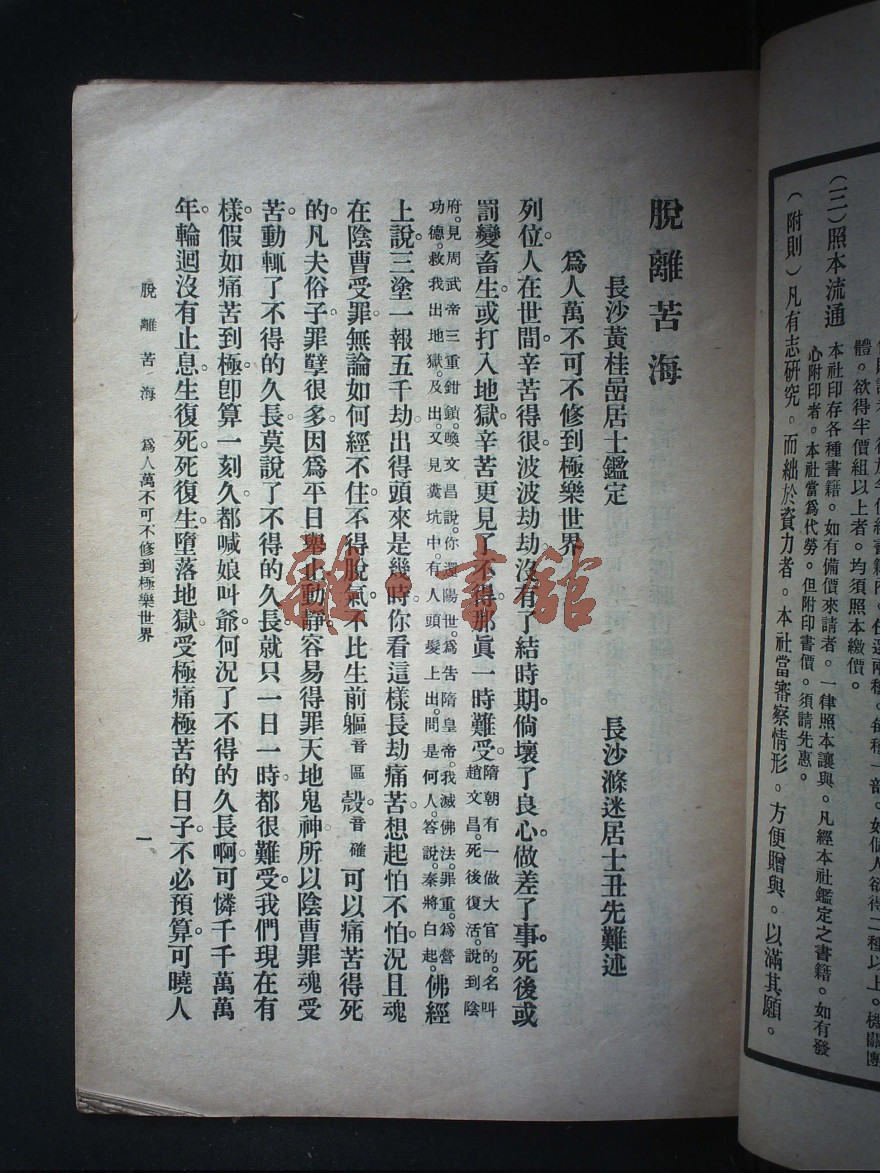 體。欲得半價組以上者。均須照本繳價。
(三)照本流通
本社印存各種書籍。如有備價來請者。一律照本讓與。凡經本社鑑定之書籍。如有發
心附印者。本社當爲代勞。但附印書價。須請先惠。
(附則)凡有志研究。而絀於資力者。本社當審察情形。方便贈與。以滿其願。
脫離苦海
長沙黃桂嵒居士鑑定 長沙滌迷居士丑先難述
爲人萬不可不修到極樂世界
列位。人在世間。辛苦得很。波波劫劫。沒有了結時期。倘壞了良心。做差了事。死後或
罰變畜生。或打入地獄。辛苦更見了不得。那眞一時難受。隋朝有一做大官的。名叫
趙文昌。死後復活。說到陰
府。見周武帝三重鉗鎖。喚文昌說。你還陽世。爲告隋皇帝。我滅佛法。罪重。爲營
功德。救我出地獄。及出。又見糞坑中。有人頭髮上出。問是何人。答說。秦將白起。佛經
上說。三塗一報五千劫。出得頭來是幾時。你看這樣長劫痛苦。想起怕不怕。況且魂
在陰曹受罪。無論如何經不住。不得脫氣。不比生前軀音區殼音確可以痛苦得死
的。凡夫俗子。罪孽很多。因爲平日舉止動靜。容易得罪天地鬼神。所以陰曹罪魂受
苦。動輒了不得的久長。莫說了不得的久長。就只一日一時。都很難受。我們現在有
樣。假如痛苦到極。卽算一刻久。都喊娘叫爺。何況了不得的久長啊。可憐千千萬萬
年。輪迴沒有止息。生復死。死復生。墮落地獄。受極痛極苦的日子。不必預算可曉。人
脫離苦海 爲人萬不可不修到極樂世界 一
雜·書館